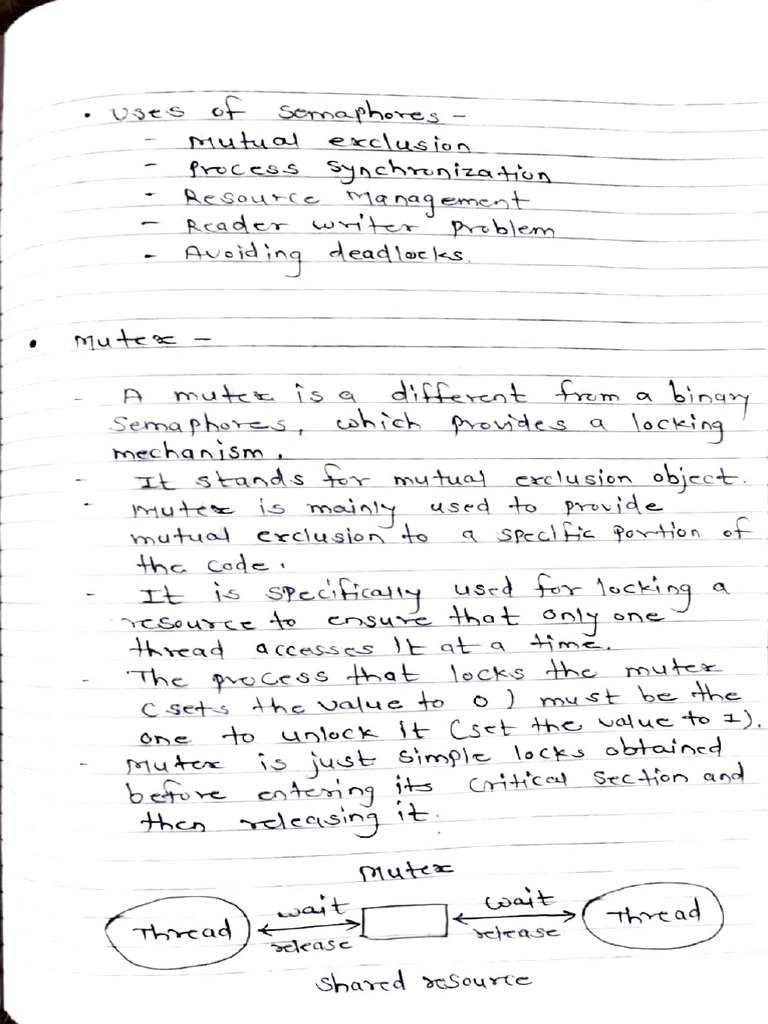 • Uses of semaphores -
- Mutual exclusion
- Process synchronization
- Resource Management
- Reader writer problem
- Avoiding deadlocks.
• Mutex -
- A mutex is a different from a binary
semaphores, which provides a locking
mechanism.
- It stands for mutual exclusion object.
- Mutex is mainly used to provide
mutual exclusion to a specific portion of
the code.
- It is specifically used for locking a
resource to ensure that only one
thread accesses it at a time.
- The process that locks the mutex
(sets the value to 0) must be the
one to unlock it (set the value to 1).
- Mutex is just simple locks obtained
before entering its critical section and
then releasing it.
Mutex
Thread wait release wait release Thread
shared resource